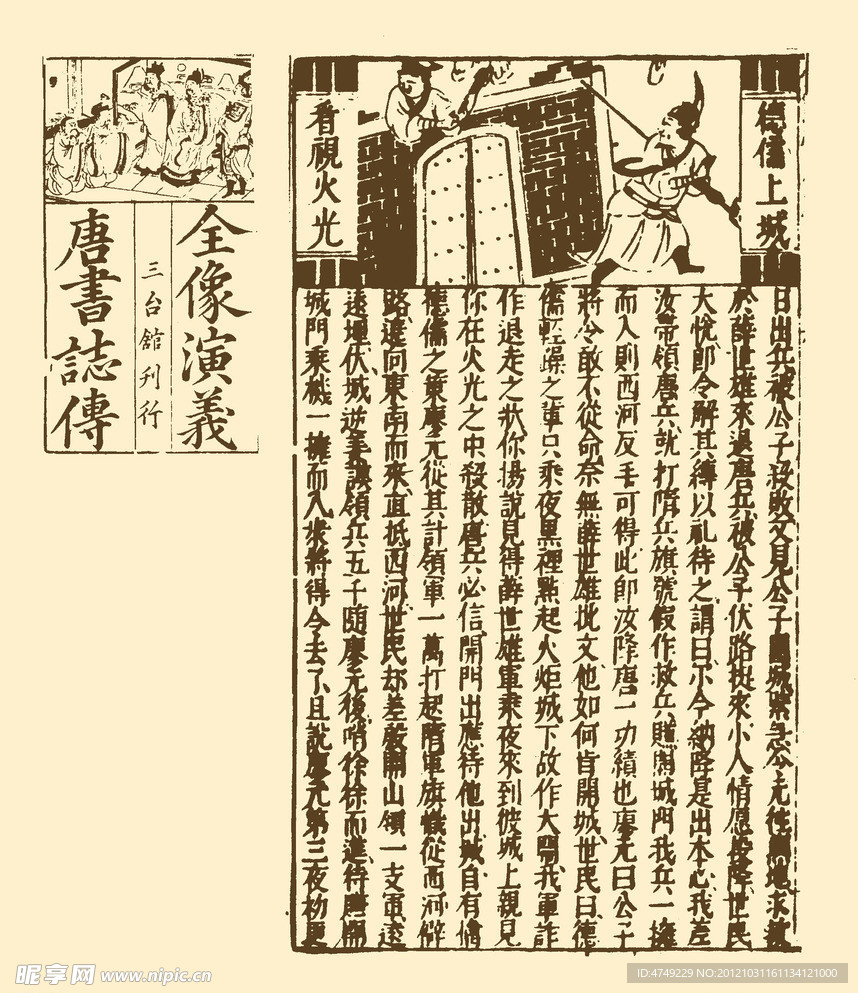 全像演義
三台館刊行
唐書誌傳
德儒上城
看視火光
日出兵被公子殺敗又見公子圍城緊急公
於薛世雄來退唐兵被公子伏路捉來小人情愿投降世民
大悅即令解其縛以礼待之謂曰尔今納降是出本心我差
汝帶領唐兵就打隋兵旗號假作救兵賺開城門我兵一擁
而入則西河反手可得此即汝降唐一功績也廖元曰公子
將令敢不從命奈無薛世雄批文他如何肯開城世民曰德
儒輕躁之輩只乘夜黑裡點起火炬城下故作大鬧我軍詐
作退走之狀你揚說見得薛世雄軍乘夜來到彼城上親見
你在火光之中殺散唐兵必信開門出應待他出城自有擒
德儒之策廖元從其計領軍一萬打起隋軍旗幟從西河僻
路遶向東南而來直抵西河世民却差殷開山領一支軍遠
遠埋伏城逆美謨領兵五千隨廖元後哨徐徐而進待唐開
城門乘機一擁而入衆將得令去了且說廖元第三夜初更
昵享网 www.nipic.cn
ID:4749229 NO:20121031161134121000